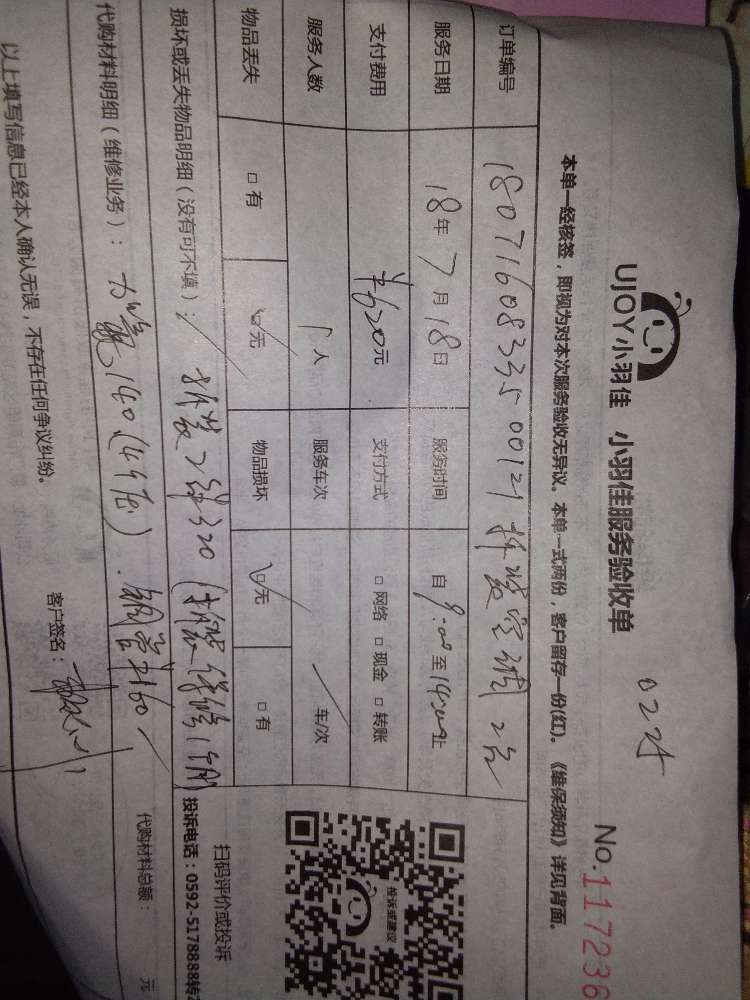 UJOY小羽佳 小羽佳服务验收单
No.117236
本单一经核签，即视为对本次服务验收无异议。本单一式两份，客户留存一份(红)。《维保须知》详见背面。
订单编号 1807160833500121 拆装空调2台
服务日期 18年7月18日 服务时间 自9:00至14:00止
支付费用 ¥620元 支付方式 □网络 □现金 □转账
服务人数 1人 服务车次 车/次
物品丢失 □有 ☑无 物品损坏 ☑无 □有
损坏或丢失物品明细（没有可不填）：/ 拆装2台320
代购材料明细（维修业务）： 140 铜管 160
代购材料总额： 元
以上填写信息已经本人确认无误，不存在任何争议纠纷。
客户签名：
投诉或建议
扫码评价或投诉
投诉电话：0592-5178888转